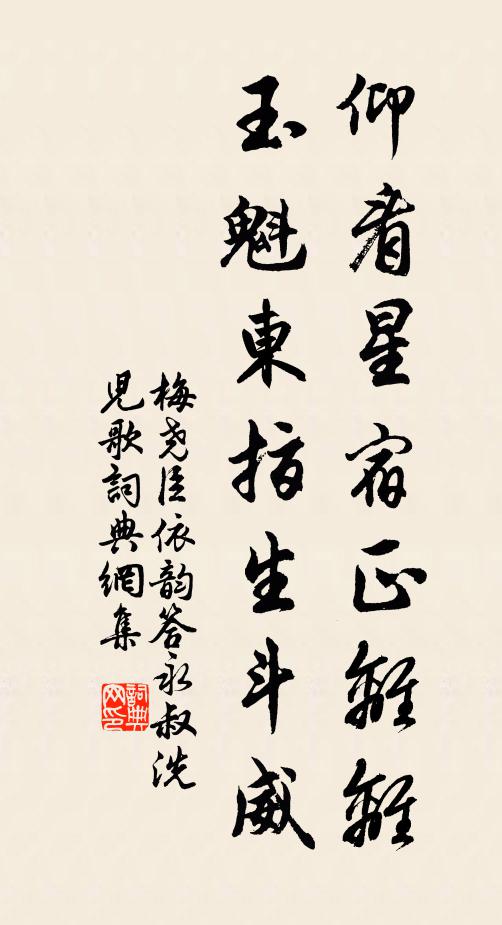 仰看星宿正離離
玉魁東指生斗威
梅尧臣依韵答永叔洗
児歌詞典網集
詞典
网印